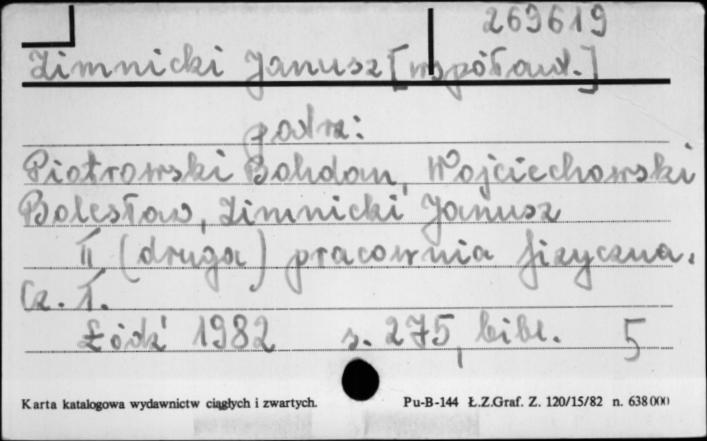 269619
Zimnicki Janusz [współaut.]
podrz:
Piotrowski Bohdan, Wojciechowski
Bolesław, Zimnicki Janusz
II (druga) pracownia fizyczna.
Cz. 1.
Łódź 1982 s. 275, bibl. 5
Karta katalogowa wydawnictw ciągłych i zwartych. Pu-B-144 Ł.Z.Graf. Z. 120/15/82 n. 638000